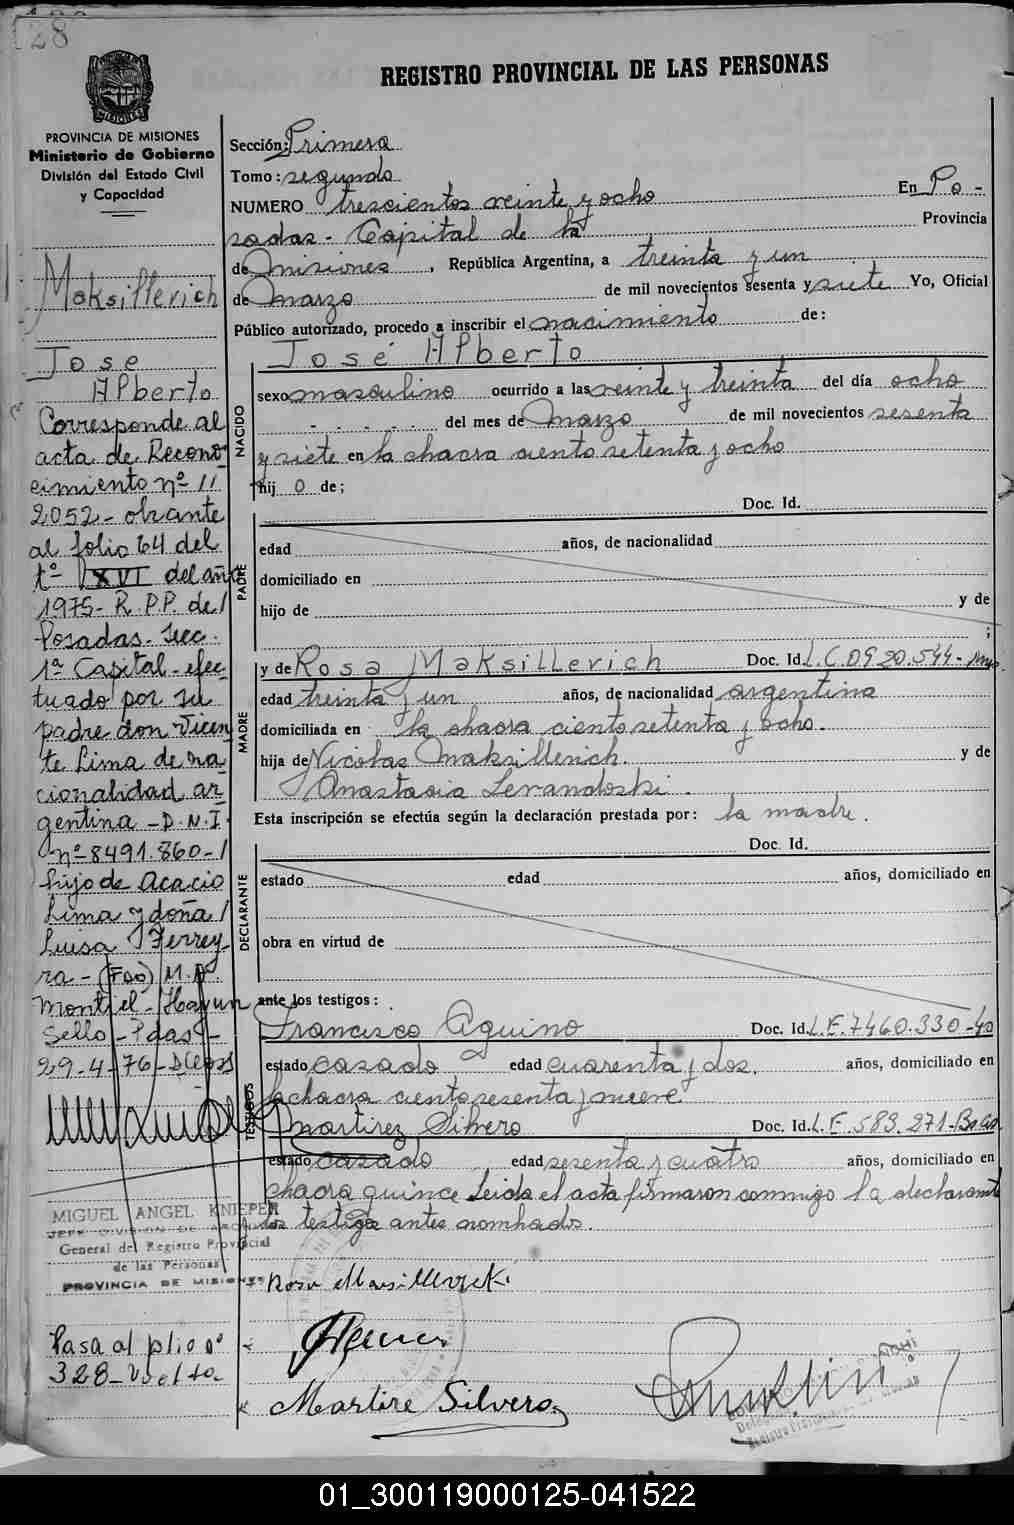 128
REGISTRO PROVINCIAL DE LAS PERSONAS
PROVINCIA DE MISIONES
Ministerio de Gobierno
División del Estado Civil
y Capacidad
Sección: Primera
Tomo: segundo
NUMERO trescientos veinte y ocho En Po-
sadas - Capital de la Provincia
de Misiones, República Argentina, a treinta y un
de Marzo de mil novecientos sesenta y siete Yo, Oficial
Público autorizado, procedo a inscribir el nacimiento de:
José Alberto
NACIDO
sexo masculino ocurrido a las veinte y treinta del día ocho
- . - . - . - . del mes de Marzo de mil novecientos sesenta
y siete en la chacra ciento setenta y ocho
hij o de;
Doc. Id.
PADRE
edad años, de nacionalidad
domiciliado en
hijo de y de
;
MADRE
y de Rosa Maksillerich Doc. Id. L.C. 0920.544-
edad treinta y un años, de nacionalidad argentina
domiciliada en la chacra ciento setenta y ocho.
hija de Nicolas Maksillerich. y de
Anastasia Levandoski.
Esta inscripción se efectúa según la declaración prestada por: la madre.
DECLARANTE
Doc. Id.
estado edad años, domiciliado en
obra en virtud de
ante los testigos:
TESTIGOS
Francisco Aquino Doc. Id. L.E. 7460.330-40
estado casado edad cuarenta y dos. años, domiciliado en
la chacra ciento sesenta y nueve.
Martirez Silvero Doc. Id. L.E. 583.271-
estado casado edad sesenta y cuatro años, domiciliado en
chacra quince Leida el acta firmaron conmigo la declarante
los testigos antes nombrados.
Rosa
Martire Silvero
Maksillerich
Jose
Alberto
Corresponde al
acta de Recono
cimiento nº 11
2052 - obrante
al folio 64 del
tº XVI del año
1975- R.P.P. de/
Posadas. Secc.
1ª Capital - efec
tuado por su
padre don Vicen
te Lima de na
cionalidad ar
gentina - D.N.I.
nº 8491.860-/
hijo de Acacio
Lima y doña/
Luisa Ferrey-
ra - (Fdo) M.A.
Montiel - Hay un
Sello - Pdas -
29-4-76-
MIGUEL ANGEL KNIEPER
JEFE DIVISION DE ARCHIVO
General del Registro Provincial
de las Personas
PROVINCIA DE MISIONES
Pasa al plio nº
328- vuelta
01_300119000125-041522